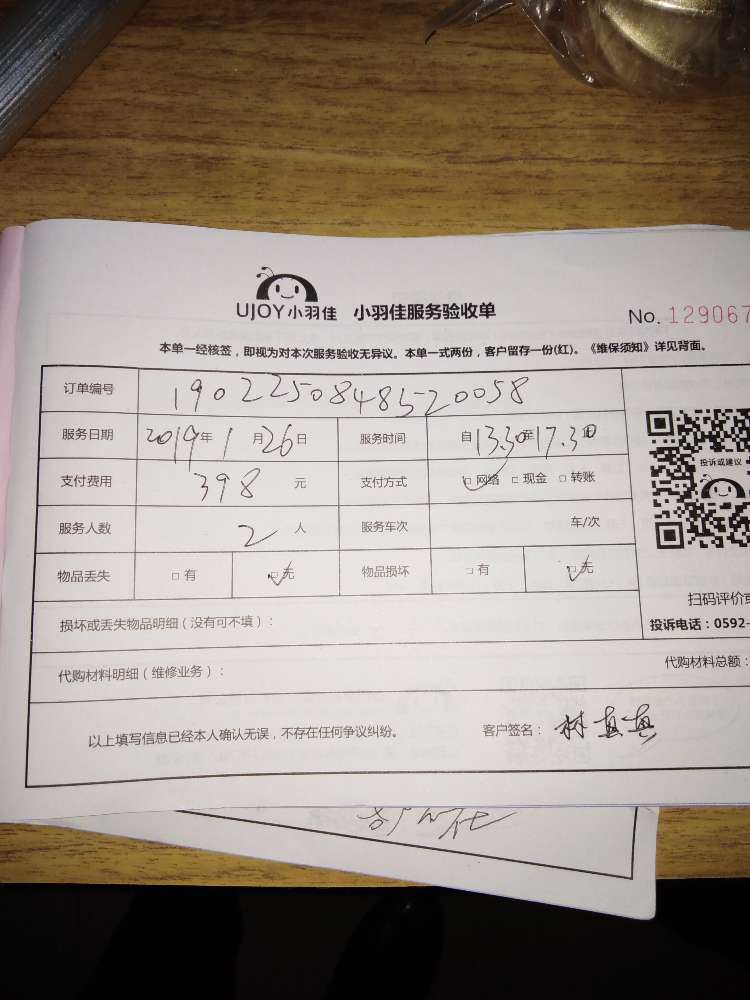 UJOY小羽佳 小羽佳服务验收单
No. 129067
本单一经核签，即视为对本次服务验收无异议。本单一式两份，客户留存一份(红)。《维保须知》详见背面。
订单编号 19022508485520058
服务日期 2019年1月26日 服务时间 自13.30至17.30止
支付费用 398元 支付方式 ☑网络 □现金 □转账
投诉或建议
服务人数 2人 服务车次 车/次
物品丢失 □有 ☑无 物品损坏 □有 ☑无
扫码评价或
损坏或丢失物品明细（没有可不填）：
投诉电话：0592-
代购材料明细（维修业务）：
代购材料总额：
以上填写信息已经本人确认无误，不存在任何争议纠纷。
客户签名：林真真